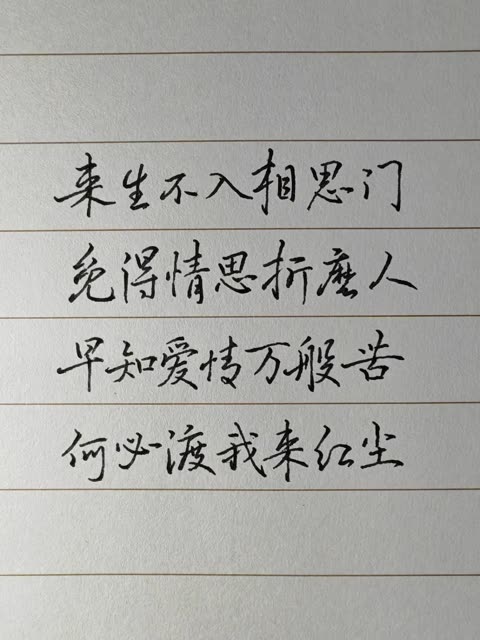 来生不入相思门
免得情思折磨人
早知爱情万般苦
何必渡我来红尘